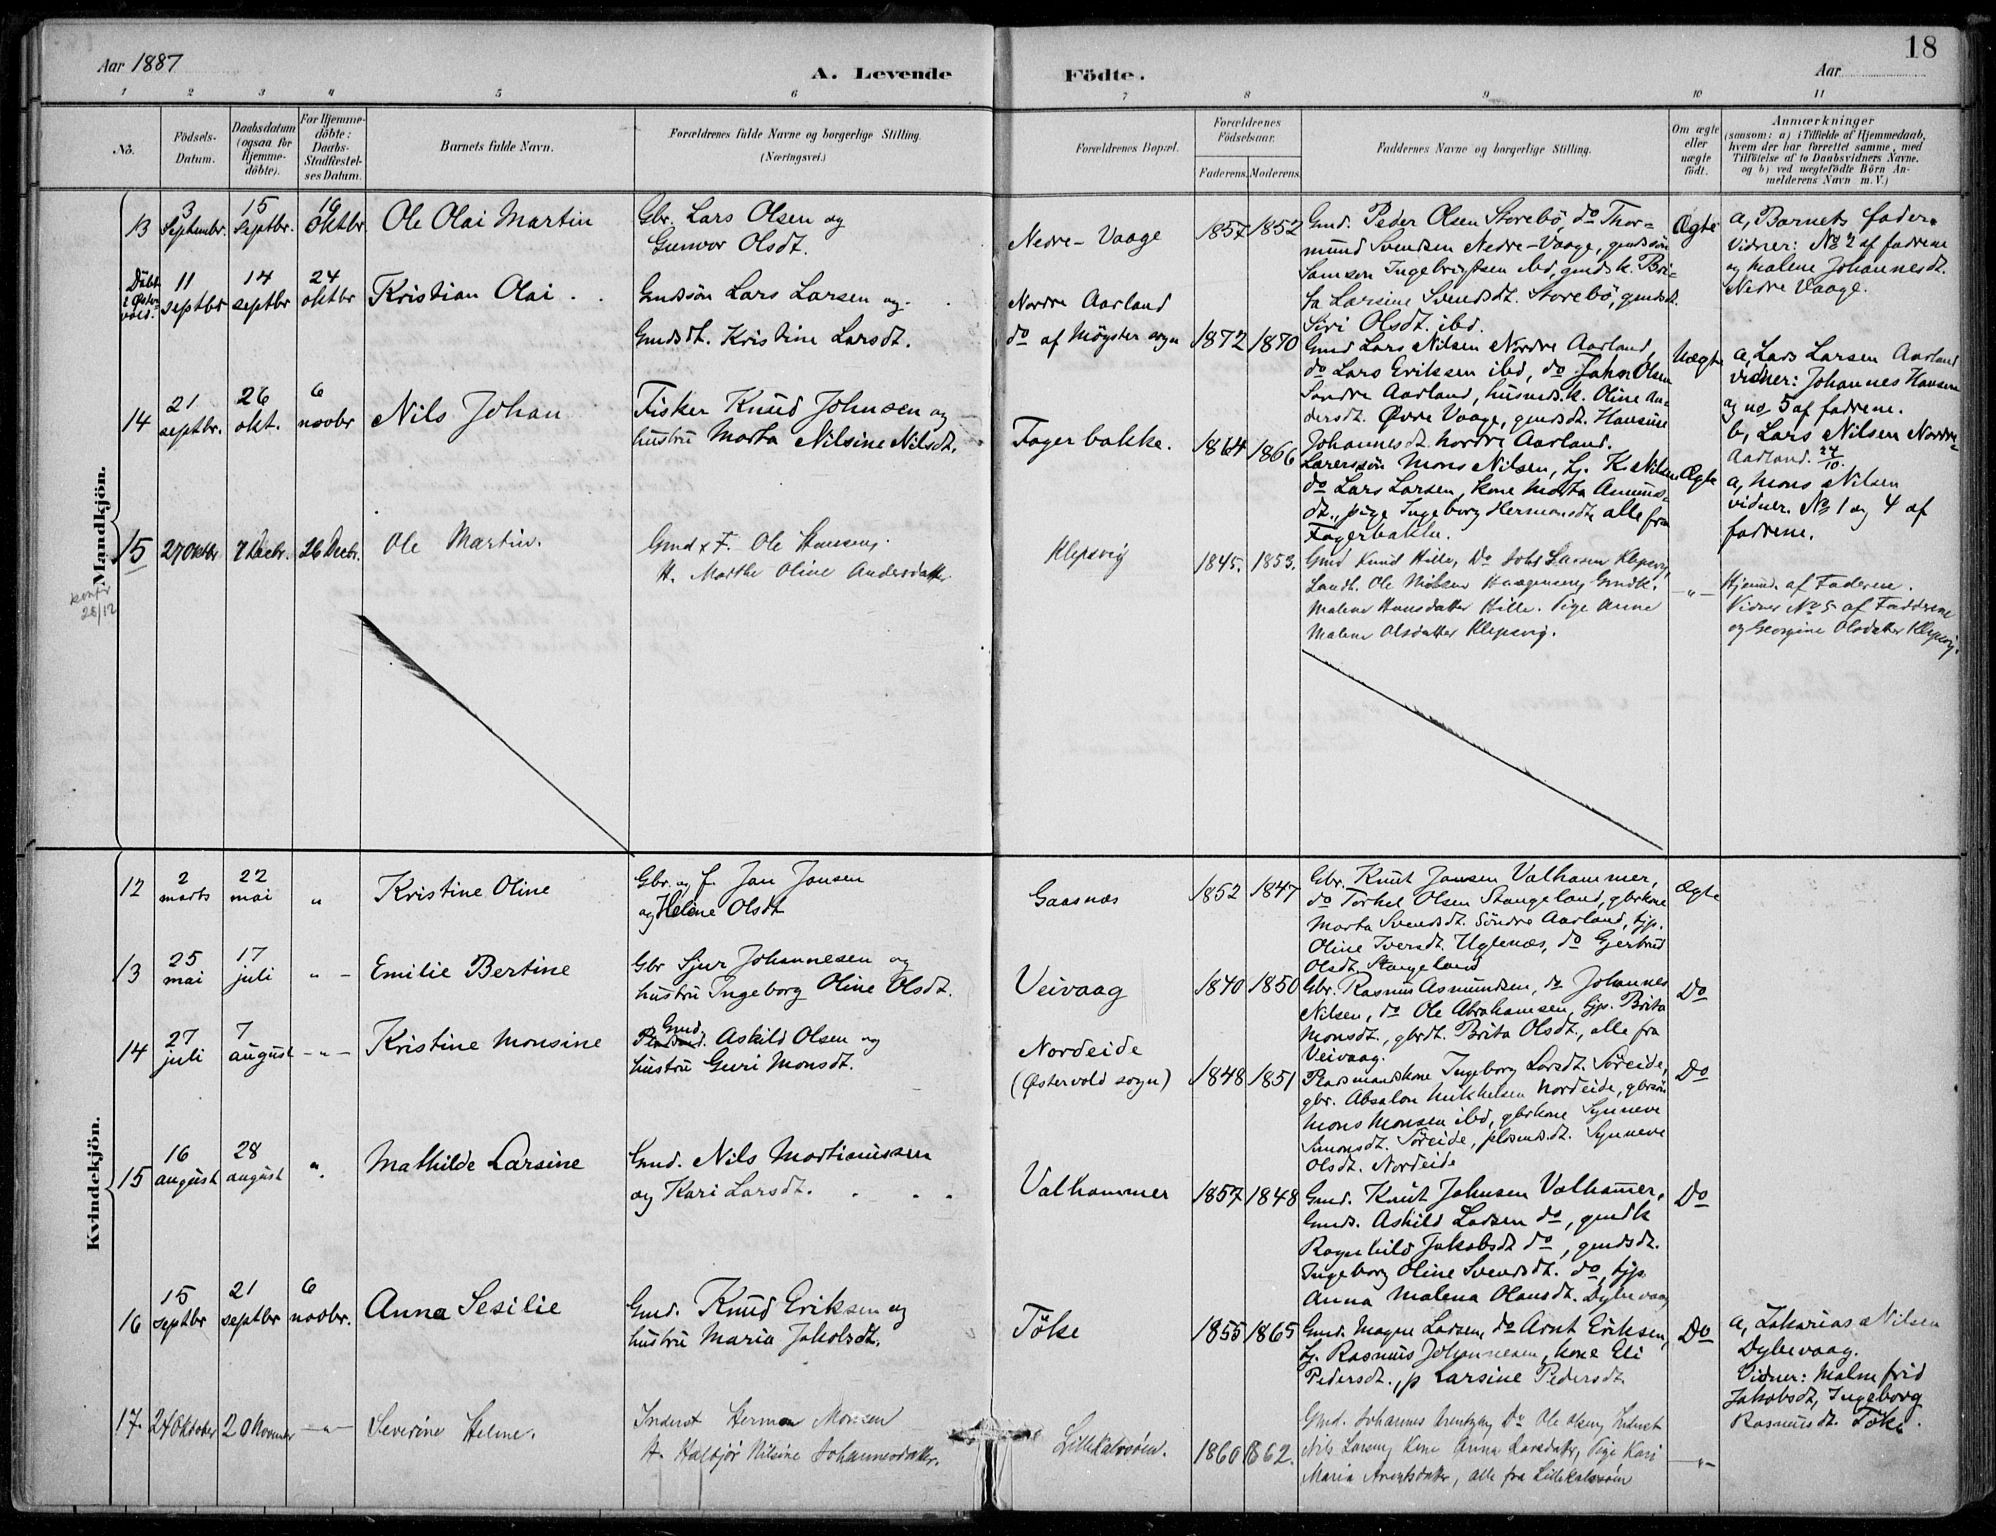 18
Aar 1887
A. Levende Födte.
Aar
1 2 3 4 5 6 7 8 9 10 11
No.
Födsels-Datum.
Daabsdatum (ogsaa for Hjemme-döbte).
For Hjemme-döbte: Daabs-Stadfæstel-ses Datum.
Barnets fulde Navn.
Forældrenes fulde Navne og borgerlige Stilling. (Næringsvei.)
Forældrenes Bopæl.
Forældrenes Födselsaar.
Faderens. Moderens.
Faddernes Navne og borgerlige Stilling.
Om ægte eller uægte födt.
Anmærkninger
(saasom: a) i Tilfælde af Hjemmedaab,
hvem der har forrettet samme, med
Tilföielse af to Daabsvidners Navne.
og b) ved uægtefödte Börn An-
melderens Navn m. V.)
Mandkjön.
13 3 Septembr. 15 Septbr. 16 oktbr Ole Olai Martin
Gbr. Lars Olsen og
Gunvor Olsdt.
Nedre-Vaage 1857 1852
Gmd. Peder Olsen Storebö, do Thor=
mund Svendsen Nedre-Vaage, gmdssön
Samson Ingebrigtsen ibd, gmdsk. Bri=
ta Larsine Svendsdt. Storebö, gmdsdt.
Siri Olsdt. ibd.
Ægte
a, Barnets fader.
Vidner: No 2 af fadrene
og Malene Johannesdt.
Nedre Vaage.
Döbt i Øster vold.
11 septbr 14 septbr 24 oktbr Kristian Olai
Gmdssön Lars Larsen og
Gmdsdt. Kristine Larsdt.
Nordre Aarland
do af Møgster sogn 1872 1870
Gmd Lars Nilsen Nordre Aarland,
do Lars Eriksen ibd, do John Olsen
Søndre Aarland, husmdsk. Oline An=
dersdt. Øvre Vaage, gmdsdt. Hansine
Johannesdt. nordre Aarland.
Uægte
a, Lars Larsen Aarland
vidner: Johannes Hansen
og no 5 af fadrene.
b, Lars Nilsen Nordre=
Aarland. 24/10.
14 21 septbr. 26 okt. 6 novbr Nils Johan
Fisker Knud Johnsen og
hustru Marta Nilsine Nilsdt.
Fagerbakke. 1864 1866
Lærerssön Mons Nilsen, Lj. K. Nilsen
do Lars Larsen, kone Marta Amuns=
dt., pige Ingeborg Hermansdt, alle fra
Fagerbakke.
Ægte
a, Mons Nilsen
vidner. No 1 og 4 af
fadrene.
15 27 Oktbr 7 Decbr. 26 Decbr. Ole Martin.
konfr 28/12
Gmd & F. Ole Hansen,
H. Marthe Oline Andersdatter
Klepsvig 1845. 1853.
Gmd Knud Hille, Do Johs Larsen Klepsvig,
Landh. Ole Nielsen Haagensen, Gmdk.
Malene Hansdatter Hille. Pige Anne
Malene Olsdatter Klepsvig.
-"-
Hjemd. af Faderen.
Vidner No 5 af Fadderne
og Georgine Olsdatter Klepsvig.
Kvindekjön.
12 2 marts 22 mai " Kristine Oline
Gbr. og f. Jan Jansen
og Helene Olsdt
Gaasnæs 1852 1847
Gbr. Knut Jansen Valhammer,
do Torkel Olsen Stangeland, gbrkone
Marta Svendsdt. Söndre Aarland, tjp.
Oline Iversdt. Uglenæs, do Gjertrud
Olsdt. Stangeland
Ægte
13 25 mai 17 juli "- Emilie Bertine
Gbr Sjur Johannesen og
hustru Ingeborg Oline Olsdt.
Veivaag 1840 1850
Gbr. Rasmus Asmundsen, do Johannes
Nilsen, do Ole Abrahamsen, tjp. Brita
Monsdt., gbrdt. Brita Olsdt., alle fra
Veivaag.
Do
14 27 juli 7 august -"- Kristine Monsine
Gmd. Askild Olsen og
hustru Guri Monsdt.
Nordeide
(Østervold sogn) 1848 1851
Plasmandskone Ingeborg Larsdt. Søreide,
gbr. Absalon Mikkelsen Nordeide, gbrsön
Mons Monsen ibd, gbrkone Synneve
Simonsdt. Søreide, plsmdsdt. Synneve
Olsdt. Nordeide
Do
15 16 august 28 august " Mathilde Larsine
Gmd. Nils Martinussen
og Kari Larsdt.
Valhammer 1857 1848
Gmd. Knut Johnsen Valhamer,
Gmds. Askild Larsen do, gmdk
Ragnhild Jakobsdt do, gmdsdt.
Ingeborg Oline Svendsdt. do, tjp
Anna Malena Olansdt. Dybevaag
Do
16 15 septbr 21 septbr 6 novbr. Anna Sesilie
Gmd. Knud Eriksen og
hustru Maria Jakobsdt.
Töke 1855 1865
Gmd. Magne Larsen, do Arnt Eriksen,
Lj. Rasmus Johannesen, kone Eli
Pedersdt., p Larsine Pedersdt
Do
a, Zakarias Nilsen
Dybevaag.
Vidner: Malmfrid
Jakobsdt, Ingeborg
Rasmusdt. Töke.
17. 24 Oktober 20 November -"- Severine Helene.
Inderst Herman Monsen
H. Halbjør Nilsine Johannesdatter.
Lillekalvsöen. 1860 1862.
Gmd. Johannes Arentzen, Do Ole Olsen, Inderst
Nils Larsen, Kone Anna Larsdatter, Pige Kari
Maria Arentsdatter, alle fra Lillekalvsöen
-"-